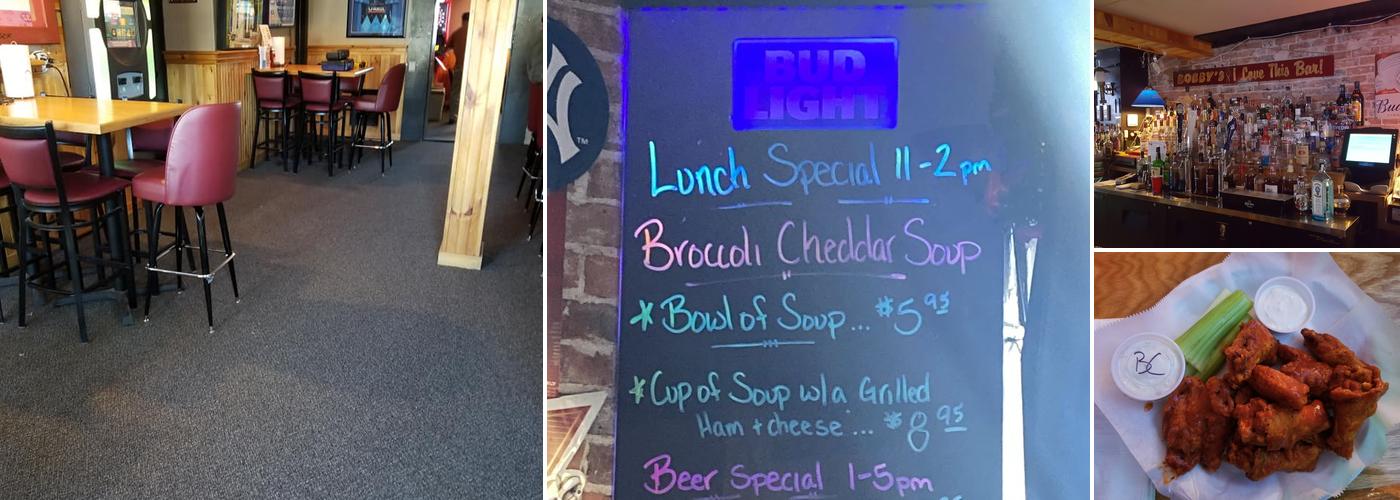 BUD
LIGHT
Lunch Special 11-2pm
Broccoli Cheddar Soup
* Bowl of Soup... $5 95
* Cup of Soup w/a Grilled
Ham + cheese... $8 95
Beer Special 1-5pm
TM
BOBBY'S I Love This Bar!
Bud
BC